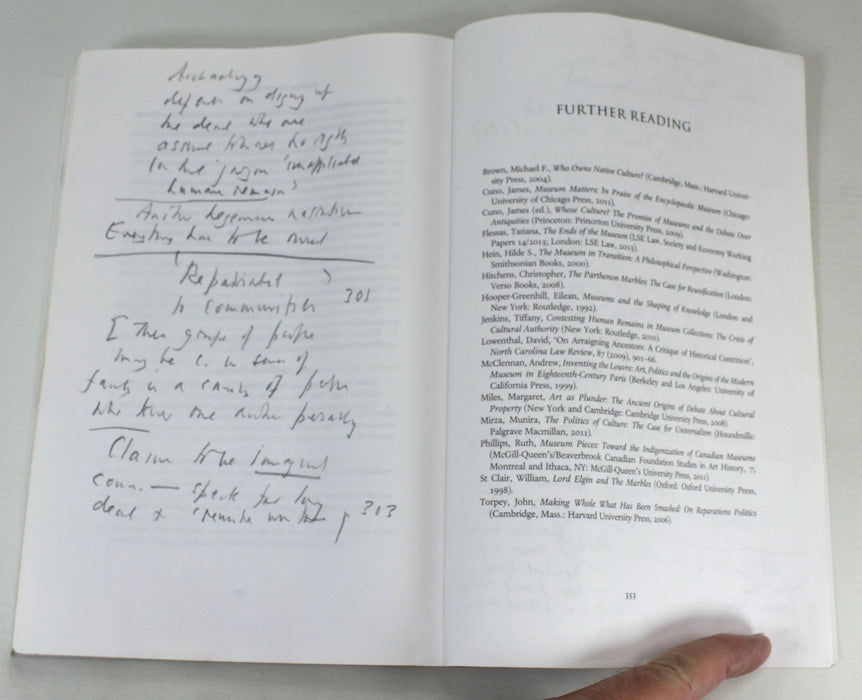 Archaeology
depends on digging up
the dead who are
assumed to have no rights
In the jargon 'unaffiliated
human remains'
Another hegemonic narrative
Everything has to be owned
Repatriated
to communities 301
[ These groups of people
may be in sense of
family is a of people
who knew one another personally
Claim to be
comm. — speak for long
dead & 313
FURTHER READING
Brown, Michael F., Who Owns Native Culture? (Cambridge, Mass.: Harvard Univer-
sity Press, 2004).
Cuno, James, Museum Matters: In Praise of the Encyclopaedic Museum (Chicago:
University of Chicago Press, 2011).
Cuno, James (ed.), Whose Culture? The Promise of Museums and the Debate Over
Antiquities (Princeton: Princeton University Press, 2009).
Flessas, Tatiana, The Ends of the Museum (LSE Law, Society and Economy Working
Papers 14/2013; London: LSE Law, 2013).
Hein, Hilde S., The Museum in Transition: A Philosophical Perspective (Washington:
Smithsonian Books, 2000).
Hitchens, Christopher, The Parthenon Marbles: The Case for Reunification (London:
Verso Books, 2008).
Hooper-Greenhill, Eilean, Museums and the Shaping of Knowledge (London and
New York: Routledge, 1992).
Jenkins, Tiffany, Contesting Human Remains in Museum Collections: The Crisis of
Cultural Authority (New York: Routledge, 2010).
Lowenthal, David, 'On Arraigning Ancestors: A Critique of Historical Contrition',
North Carolina Law Review, 87 (2009), 901–66.
McClennan, Andrew, Inventing the Louvre: Art, Politics and the Origins of the Modern
Museum in Eighteenth-Century Paris (Berkeley and Los Angeles: University of
California Press, 1999).
Miles, Margaret, Art as Plunder: The Ancient Origins of Debate About Cultural
Property (New York and Cambridge: Cambridge University Press, 2008).
Mirza, Munira, The Politics of Culture: The Case for Universalism (Houndmills:
Palgrave Macmillan, 2011).
Phillips, Ruth, Museum Pieces: Toward the Indigenization of Canadian Museums
(McGill-Queen's/Beaverbrook Canadian Foundation Studies in Art History, 7;
Montreal and Ithaca, NY: McGill-Queen's University Press, 2011).
St Clair, William, Lord Elgin and The Marbles (Oxford: Oxford University Press,
1998).
Torpey, John, Making Whole What Has Been Smashed: On Reparations Politics
(Cambridge, Mass.: Harvard University Press, 2006).
353